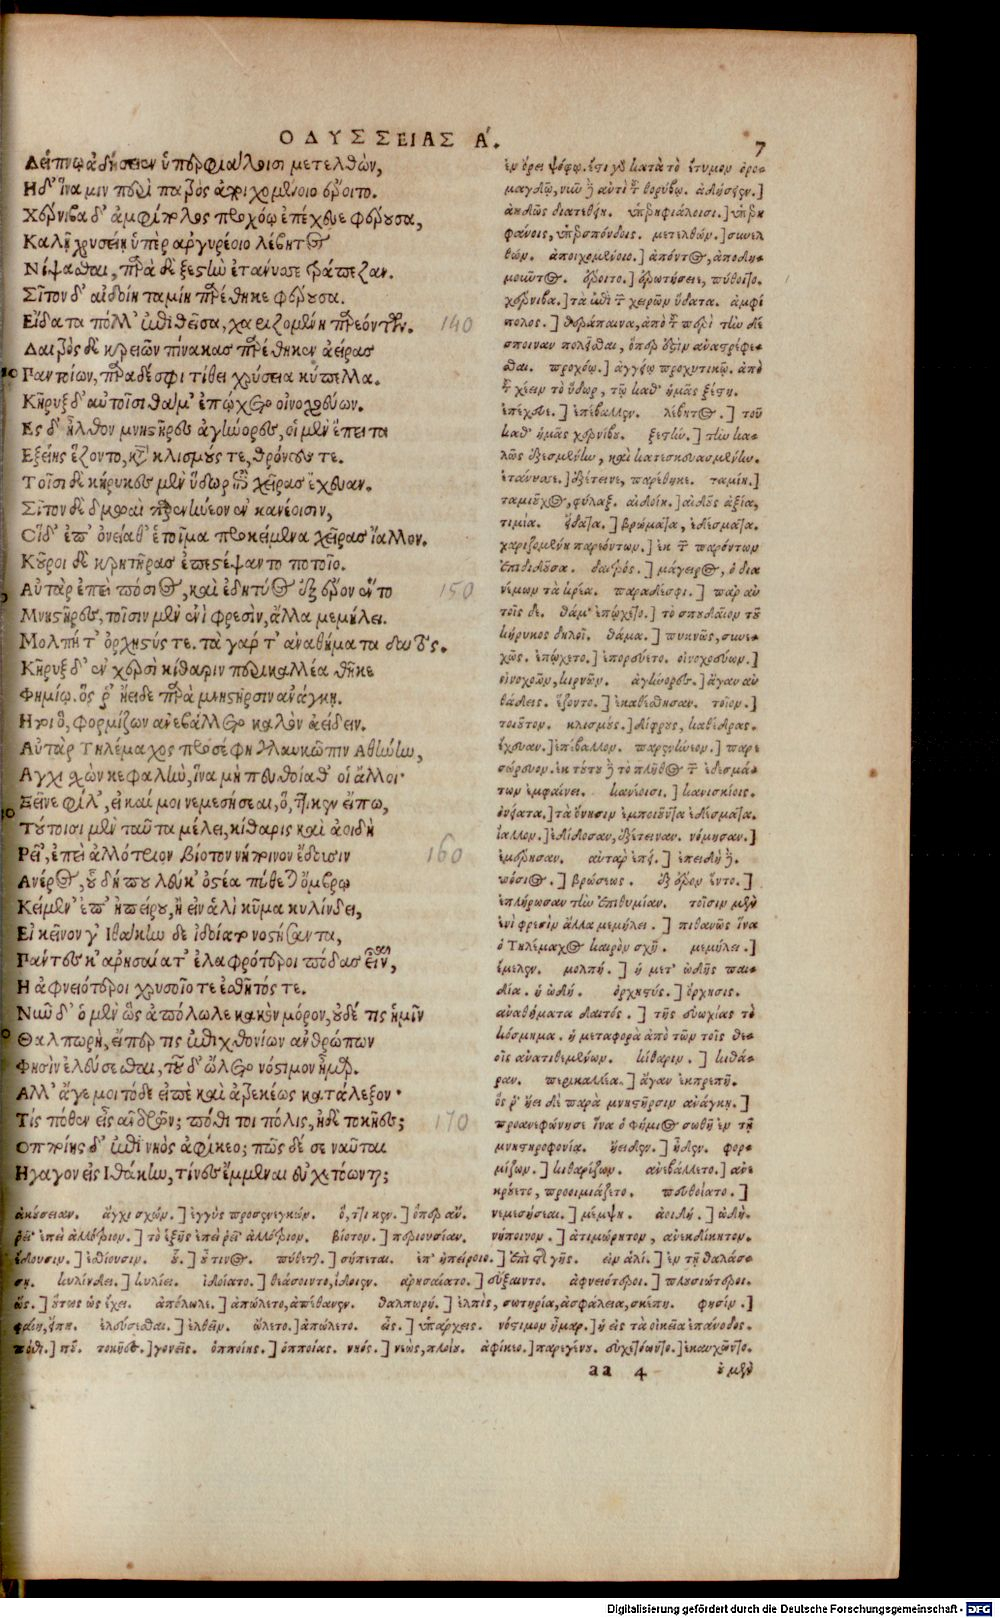 ΟΔΥΣΣΕΙΑΣ Α.
7
Δείπνῳ ἁδήσειεν ὑπερφιάλοισι μετελθών,
Ηδ' ἵνα μιν περὶ πατρὸς ἀποιχομένοιο ἔροιτο.
Χέρνιβα δ' ἀμφίπολος προχόῳ ἐπέχευε φέρουσα,
Καλῇ χρυσείῃ ὑπὲρ ἀργυρέοιο λέβητος
Νίψασθαι, παρὰ δὲ ξεστὴν ἐτάνυσσε τράπεζαν.
Σῖτον δ' αἰδοίη ταμίη παρέθηκε φέρουσα.
Εἴδατα πόλλ' ἐπιθεῖσα, χαριζομένη παρεόντων.
140
Δαιτρὸς δὲ κρειῶν πίνακας παρέθηκεν ἀείρας
Παντοίων, παρὰ δέ σφι τίθει χρύσεια κύπελλα.
Κῆρυξ δ' αὐτοῖσι θαμ' ἐπῴχετο οἰνοχοεύων.
Ες δ' ἦλθον μνηστῆρες ἀγήνορες, οἱ μὲν ἔπειτα
Εξείης ἕζοντο, κατὰ κλισμούς τε, θρόνους τε.
Τοῖσι δὲ κήρυκες μὲν ὕδωρ ἐπὶ χεῖρας ἔχευαν.
Σῖτον δὲ δμωαὶ παρενήνεον ἐν κανέοισιν,
Οἱ δ' ἐπ' ὀνείαθ' ἑτοῖμα προκείμενα χεῖρας ἴαλλον.
Κοῦροι δὲ κρητῆρας ἐπεστέψαντο ποτοῖο.
Αὐτὰρ ἐπεὶ πόσιος, καὶ ἐδητύος ἐξ ἔρον ἕντο
150
Μνηστῆρες, τοῖσιν μὲν ἐνὶ φρεσὶν, ἄλλα μεμήλει.
Μολπή τ' ὀρχηστύς τε. τὰ γάρ τ' ἀναθήματα δαιτός.
Κῆρυξ δ' ἐν χερσὶ κίθαριν περικαλλέα θῆκε
Φημίῳ. ὅς ῥ' ἤειδε παρὰ μνηστῆρσιν ἀνάγκῃ.
Ητοι ὁ, φορμίζων ἀνεβάλλετο καλὸν ἀείδειν.
Αὐτὰρ Τηλέμαχος προσέφη γλαυκῶπιν Αθήνην,
Αγχι σχὼν κεφαλὴν, ἵνα μὴ πευθοίαθ' οἱ ἄλλοι·
Ξεῖνε φίλ', εἰ καί μοι νεμεσήσεαι, ὅ, ττι κεν εἴπω,
Τούτοισι μὲν ταῦτα μέλει, κίθαρις καὶ ἀοιδὴ
Ρεῖ', ἐπεὶ ἀλλότριον βίοτον νήποινον ἔδουσιν
160
Ανέρος, οὗ δή που λεύκ' ὀστέα πύθεται ὄμβρῳ
Κείμεν' ἐπ' ἠπείρου, ἢ εἰν ἁλὶ κῦμα κυλίνδει,
Εἰ κεῖνόν γ' Ιθάκην δε ἰδοίατο νοστήσαντα,
Πάντες κ' ἀρησαίατ' ἐλαφρότεροι πόδας εἶναι,
Η ἀφνειότεροι χρυσοῖο τε ἐσθῆτός τε.
Νῦν δ' ὁ μὲν ὣς ἀπόλωλε κακὸν μόρον, οὐδέ τις ἡμῖν
Θαλπωρὴ, εἴπερ τις ἐπιχθονίων ἀνθρώπων
Φησὶν ἐλεύσεσθαι, τοῦ δ' ὤλετο νόστιμον ἦμαρ.
Αλλ' ἄγε μοι τόδε εἰπὲ καὶ ἀτρεκέως κατάλεξον·
Τίς πόθεν εἶς ἀνδρῶν; πόθι τοι πόλις, ἠδὲ τοκῆες;
170
Οπποίης δ' ἐπὶ νηὸς ἀφίκεο; πῶς δέ σε ναῦται
Ηγαγον εἰς Ιθάκην, τίνες ἔμμεναι εὐχετόωντο;
ἐν ὄρει ψόφῳ. ἔστι γὰρ κατὰ τὸ ἔτυμον ὀρο-
ἀηδῶς διατεθῇ. ὑπερφιάλοισι.] ὑπερη
φάνοις, ὑπερσπόνδοις. μετελθών.] συνελ
θών. ἀποιχομένοιο.] ἀπόντος, ἀποδη-
μοῦντος. ἔροιτο.] ἐρωτήσειε, πύθοιτο.
χέρνιβα.] τὰ ἐπὶ τῶν χειρῶν ὕδατα. ἀμφί
πολος.] θεράπαινα, ἀπὸ τοῦ περὶ τὴν δέ
σποιναν πολεῖσθαι, ὅπερ ἐστὶν ἀναστρέφε-
σθαι. προχόῳ.] ἀγγείῳ προχυτικῷ. ἀπὸ
τοῦ χέειν τὸ ὕδωρ, τῷ καθ' ἡμᾶς ξέστῃ.
ἐπέχευε.] ἐπέβαλλεν. λέβητος.] τοῦ
καθ' ἡμᾶς χερνίβου. ξεστήν.] τὴν κα-
λῶς ἐξεσμένην, καὶ κατεσκευασμένην.
ἐτάνυσε.] ἐξέτεινε, παρέθηκε. ταμίη.]
ταμιοῦχος, φύλαξ. αἰδοίη.] αἰδοῦς ἀξία,
τιμία. εἴδατα.] βρώματα, ἐδέσματα.
χαριζομένη παρεόντων.] ἐκ τῶν παρόντων
ἐπιδιδοῦσα. δαιτρός.] μάγειρος, ὁ δια
νέμων τὰ κρέα. παρὰ δέ σφι.] παρ' αὐ
τοῖς δέ. θάμ' ἐπῴχετο.] τὸ σπουδαῖον τοῦ
κήρυκος δηλοῖ. θάμα.] πυκνῶς, συνε-
χῶς. ἐπῴχετο.] ἐπορεύετο. οἰνοχοεύων.]
οἰνοχοῶν, κιρνῶν. ἀγήνορες.] ἄγαν αὐ
θάδεις. ἕζοντο.] ἐκαθέσθησαν. τοῖον.]
τοιοῦτον. κλισμούς.] δίφρους, καθέδρας.
ἔχευαν.] ἐπέβαλλον. παρενήνεον.] παρε
σώρευον. ἐκ τούτου δὲ τὸ πλῆθος τῶν ἐδεσμά-
των ἐμφαίνει. κανέοισι.] κανισκίοις.
ὀνείατα.] τὰ ὄνησιν ἐμποιοῦντα ἐδέσματα.
ἴαλλον.] ἐδίδοσαν, ἐξέτειναν. νόμησαν.]
ἐμέρισαν. αὐτὰρ ἐπεί.] ἐπειδὴ δέ.
πόσιος.] βρώσεως. ἐξ ἔρον ἕντο.]
ἐπλήρωσαν τὴν ἐπιθυμίαν. τοῖσιν μὲν
ἐνὶ φρεσὶν ἄλλα μεμήλει.] πιθανῶς ἵνα
ὁ Τηλέμαχος καιρὸν σχῇ. μεμήλει.]
ἔμελεν. μολπή.] ἡ μετ' ᾠδῆς παι-
διά. ἡ ᾠδή. ὀρχηστύς.] ὄρχησις.
ἀναθήματα δαιτός.] τῆς εὐωχίας τὸ
κόσμημα. ἡ μεταφορὰ ἀπὸ τῶν τοῖς θε-
οῖς ἀνατιθεμένων. κίθαριν.] κιθά-
ραν. περικαλλέα.] ἄγαν ἐκπρεπῆ.
ὅς ῥ' ἤειδε παρὰ μνηστῆρσιν ἀνάγκῃ.]
προανεφώνησε ἵνα ὁ φήμιος σωθῇ ἐν τῇ
μνηστηροφονίᾳ. ἤειδεν.] ᾖδεν. φορ-
μίζων.] κιθαρίζων. ἀνεβάλλετο.] ἀνε
κρούετο, προοιμιάζετο. πευθοίατο.]
ἀκούσειαν. ἄγχι σχών.] ἐγγὺς προσενεγκών. ὅ, ττι κεν.] ὅπερ ἄν. νεμεσήσεαι.] μέμψῃ. ἀοιδή.] ᾠδή.
ῥεῖ' ἐπεὶ ἀλλότριον.] τὸ ἑξῆς ἐπεὶ ῥεῖ' ἀλλότριον. βίοτον.] περιουσίαν. νήποινον.] ἀτιμώρητον, ἀνεκδίκητον.
ἔδουσιν.] ἐσθίουσιν. οὗ.] οὗτινος. πύθεται.] σήπεται. ἐπ' ἠπείροιο.] ἐπὶ τῆς γῆς. εἰν ἁλί.] ἐν τῇ θαλάσ-
σῃ. κυλίνδει.] κυλίει. ἰδοίατο.] θεάσοιντο, ἴδοιεν. ἀρησαίατο.] εὔξαιντο. ἀφνειότεροι.] πλουσιώτεροι.
ὥς.] οὕτως ὡς ἔχει. ἀπόλωλε.] ἀπώλετο, ἀπέθανεν. θαλπωρή.] ἐλπὶς, σωτηρία, ἀσφάλεια, σκέπη. φησίν.]
φαίη, εἴπῃ. ἐλεύσεσθαι.] ἐλθεῖν. ὤλετο.] ἀπώλετο. εἶς.] ὑπάρχεις. νόστιμον ἦμαρ.] ἡ εἰς τὰ οἰκεῖα ἐπάνοδος.
πόθι.] ποῦ. τοκῆες.] γονεῖς. ὁπποίης.] ὁπποίας. νηός.] νεὼς, πλοίου. ἀφίκεο.] παρεγένου. εὐχετόωντο.] ἐκαυχῶντο.
aa 4
ὁ μὲν
Digitalisierung gefördert durch die Deutsche Forschungsgemeinschaft - DFG